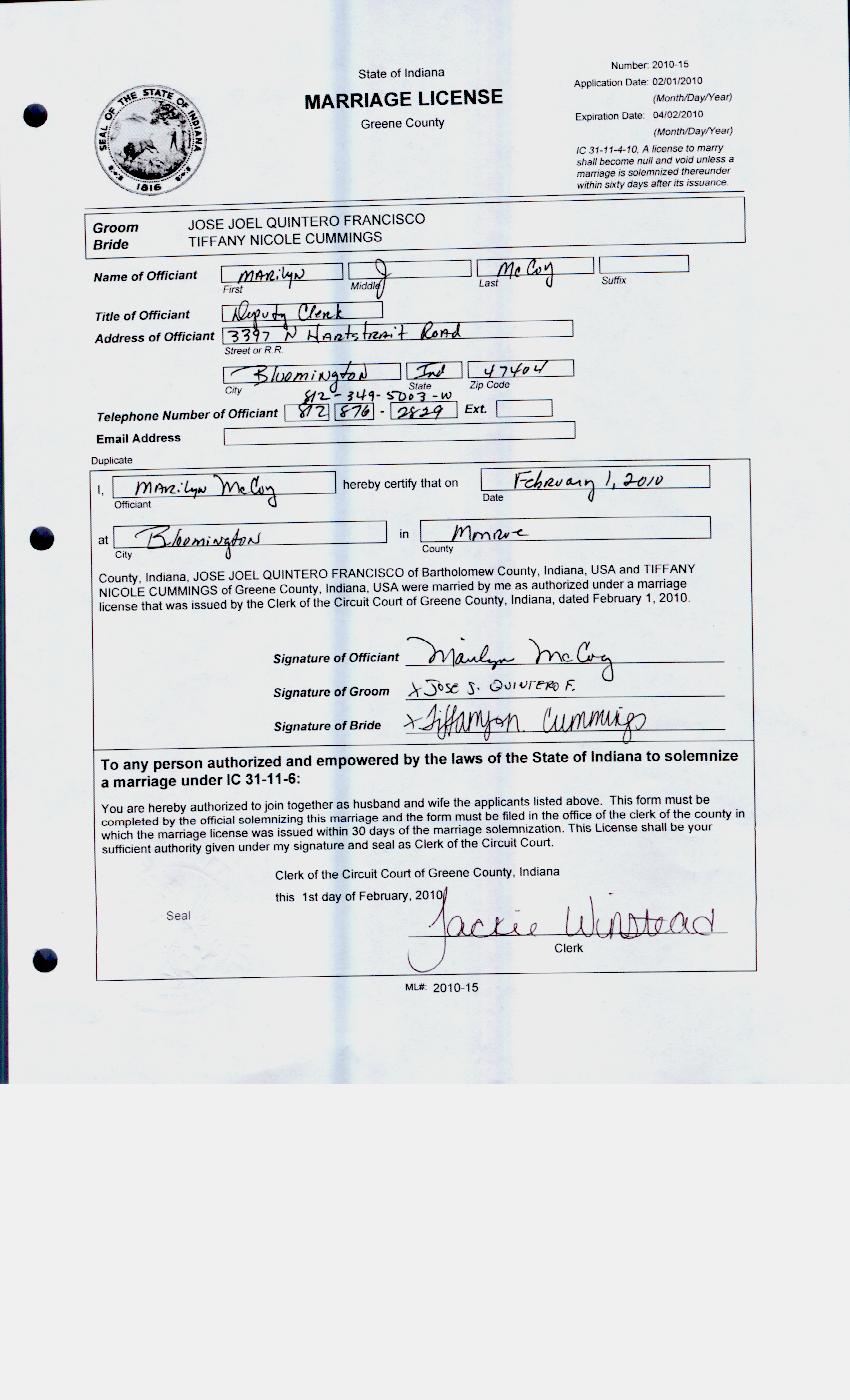 State of Indiana
MARRIAGE LICENSE
Greene County
Number: 2010-15
Application Date: 02/01/2010
(Month/Day/Year)
Expiration Date: 04/02/2010
(Month/Day/Year)
IC 31-11-4-10. A license to marry
shall become null and void unless a
marriage is solemnized thereunder
within sixty days after its issuance.
SEAL OF THE STATE OF INDIANA
1816
Groom JOSE JOEL QUINTERO FRANCISCO
Bride TIFFANY NICOLE CUMMINGS
Name of Officiant Marilyn J McCoy
First Middle Last Suffix
Title of Officiant Deputy Clerk
Address of Officiant 3397 N Hartstrait Road
Street or R.R.
Bloomington Ind 47404
City State Zip Code
812-349-5003-W
Telephone Number of Officiant 812 876 - 2829 Ext.
Email Address
Duplicate
I, Marilyn McCoy hereby certify that on February 1, 2010
Officiant Date
at Bloomington in Monroe
City County
County, Indiana, JOSE JOEL QUINTERO FRANCISCO of Bartholomew County, Indiana, USA and TIFFANY
NICOLE CUMMINGS of Greene County, Indiana, USA were married by me as authorized under a marriage
license that was issued by the Clerk of the Circuit Court of Greene County, Indiana, dated February 1, 2010.
Signature of Officiant Marilyn McCoy
Signature of Groom X JOSE J. QUINTERO F.
Signature of Bride X Tiffany n. Cummings
To any person authorized and empowered by the laws of the State of Indiana to solemnize
a marriage under IC 31-11-6:
You are hereby authorized to join together as husband and wife the applicants listed above. This form must be
completed by the official solemnizing this marriage and the form must be filed in the office of the clerk of the county in
which the marriage license was issued within 30 days of the marriage solemnization. This License shall be your
sufficient authority given under my signature and seal as Clerk of the Circuit Court.
Clerk of the Circuit Court of Greene County, Indiana
this 1st day of February, 2010
Seal
Jackie Winstead
Clerk
ML#: 2010-15